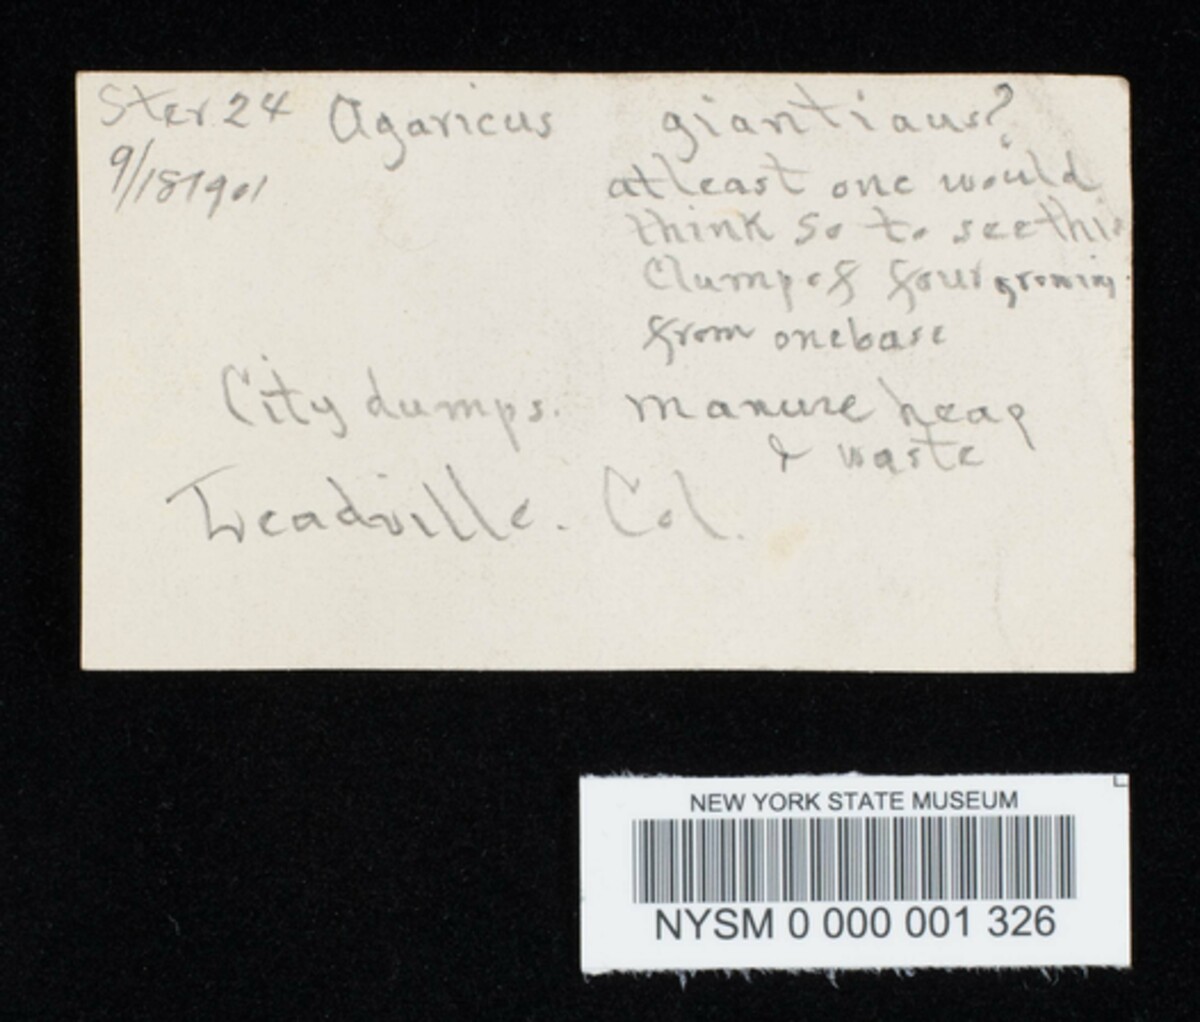 Ster 24 Agaricus giantiaus?
9/18 1901
at least one would
think so to see this
Clump of four growing
from one base
City dumps. manure heap
& waste
Leadville. Col.
NEW YORK STATE MUSEUM
NYSM 0 000 001 326